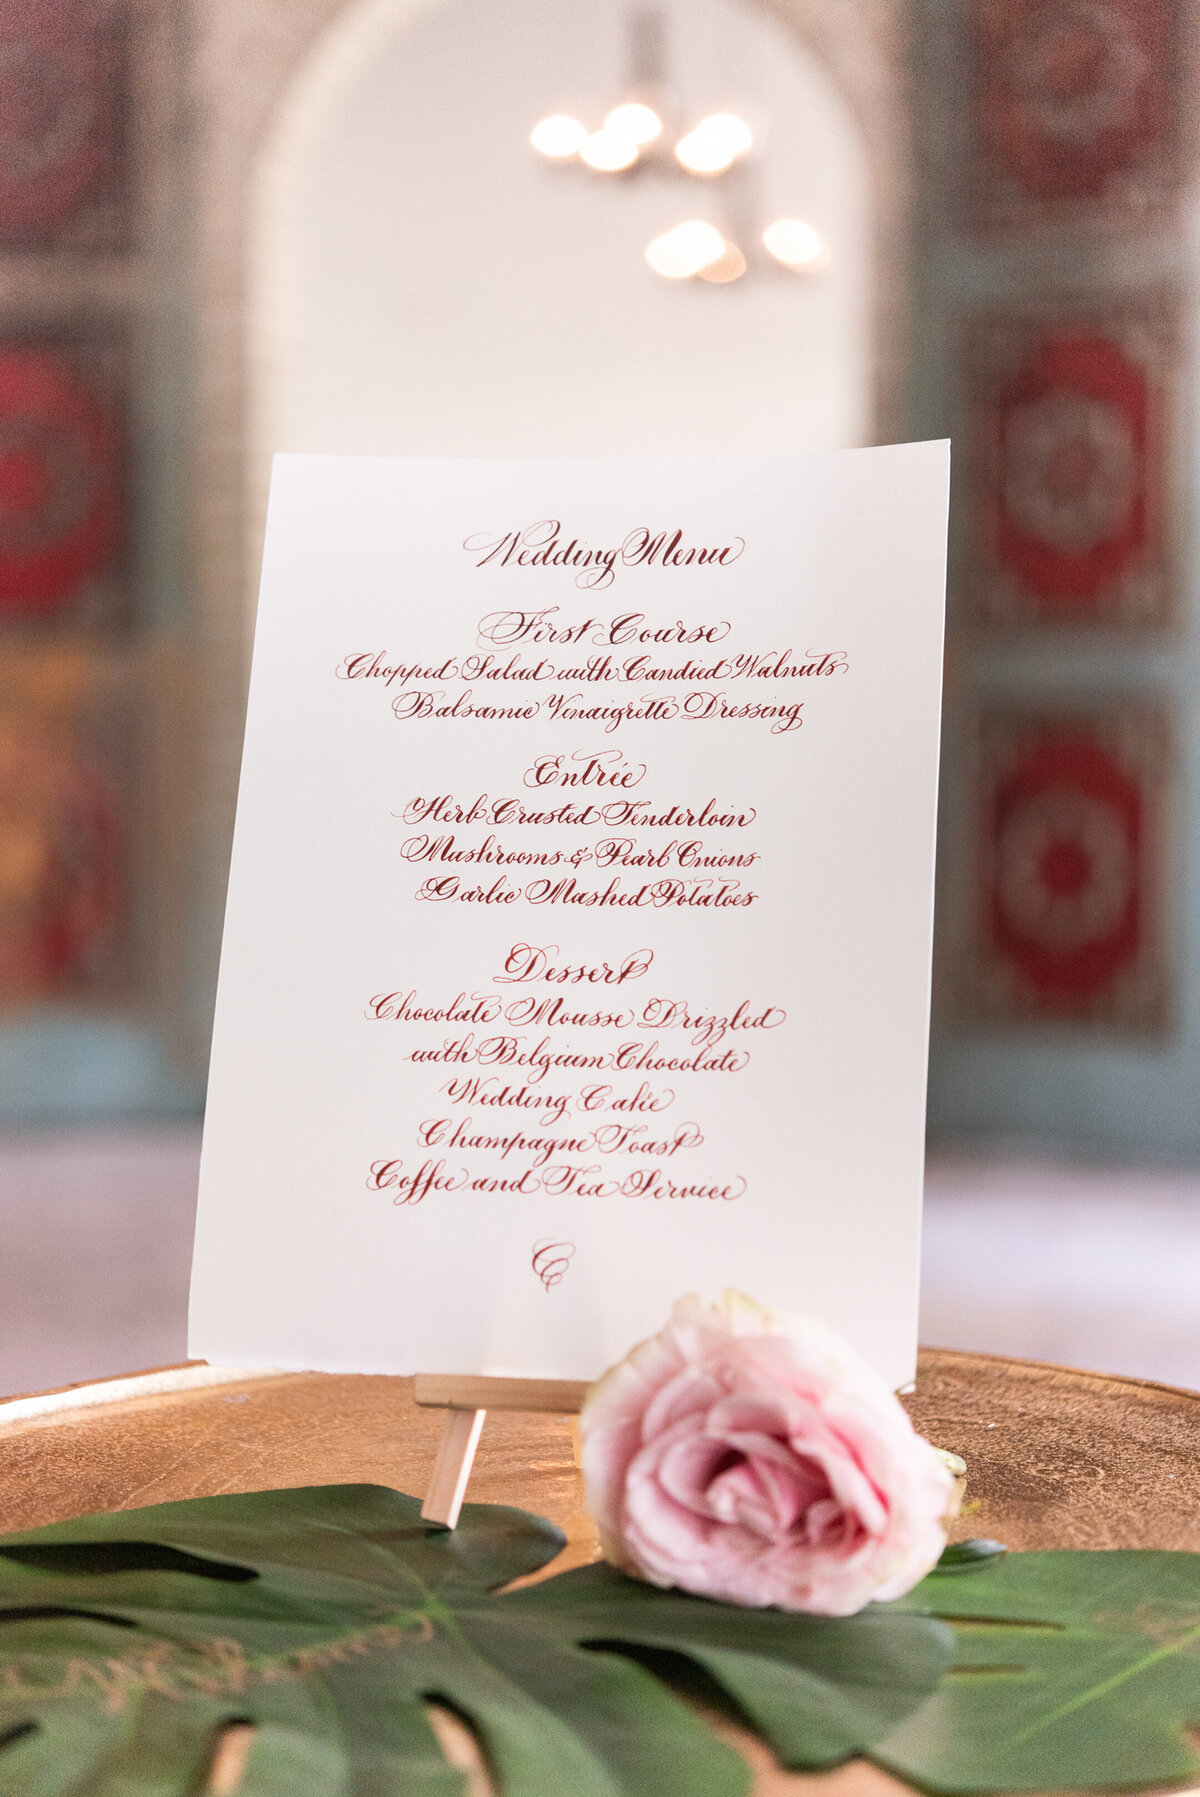 Wedding Menu
First Course
Chopped Salad with Candied Walnuts
Balsamic Vinaigrette Dressing
Entrée
Herb Crusted Tenderloin
Mushrooms & Pearl Onions
Garlic Mashed Potatoes
Dessert
Chocolate Mousse Drizzled
with Belgium Chocolate
Wedding Cake
Champagne Toast
Coffee and Tea Service
C